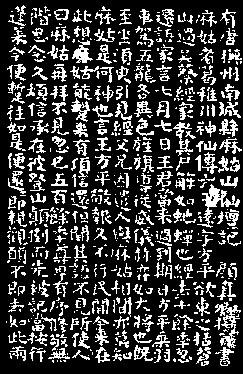 有唐撫州南城縣麻姑山仙壇記 顏真卿撰并書
麻姑者葛稚川神仙傳云王遠字方平欲東之括蒼
山過吳蔡經家教其尸解如蛇蟬也經去十餘年忽
還語家言七月七日王君當來過到期日方平乘羽
車駕五龍各異色旌旗導從威儀赫弈如大將也既
至坐須臾引見經父兄因遣人與麻姑相聞亦莫知
麻姑是何神也言王方平敬報久不行民間今來在
此想麻姑能暫來有頃信還但聞其語不見所使人
曰麻姑再拜不見忽已五百餘年尊卑有序修敬無
階思念久煩信承在彼登山顛倒而先被記當按行
蓬萊今便暫往如是便還還即親觀願不即去如此兩